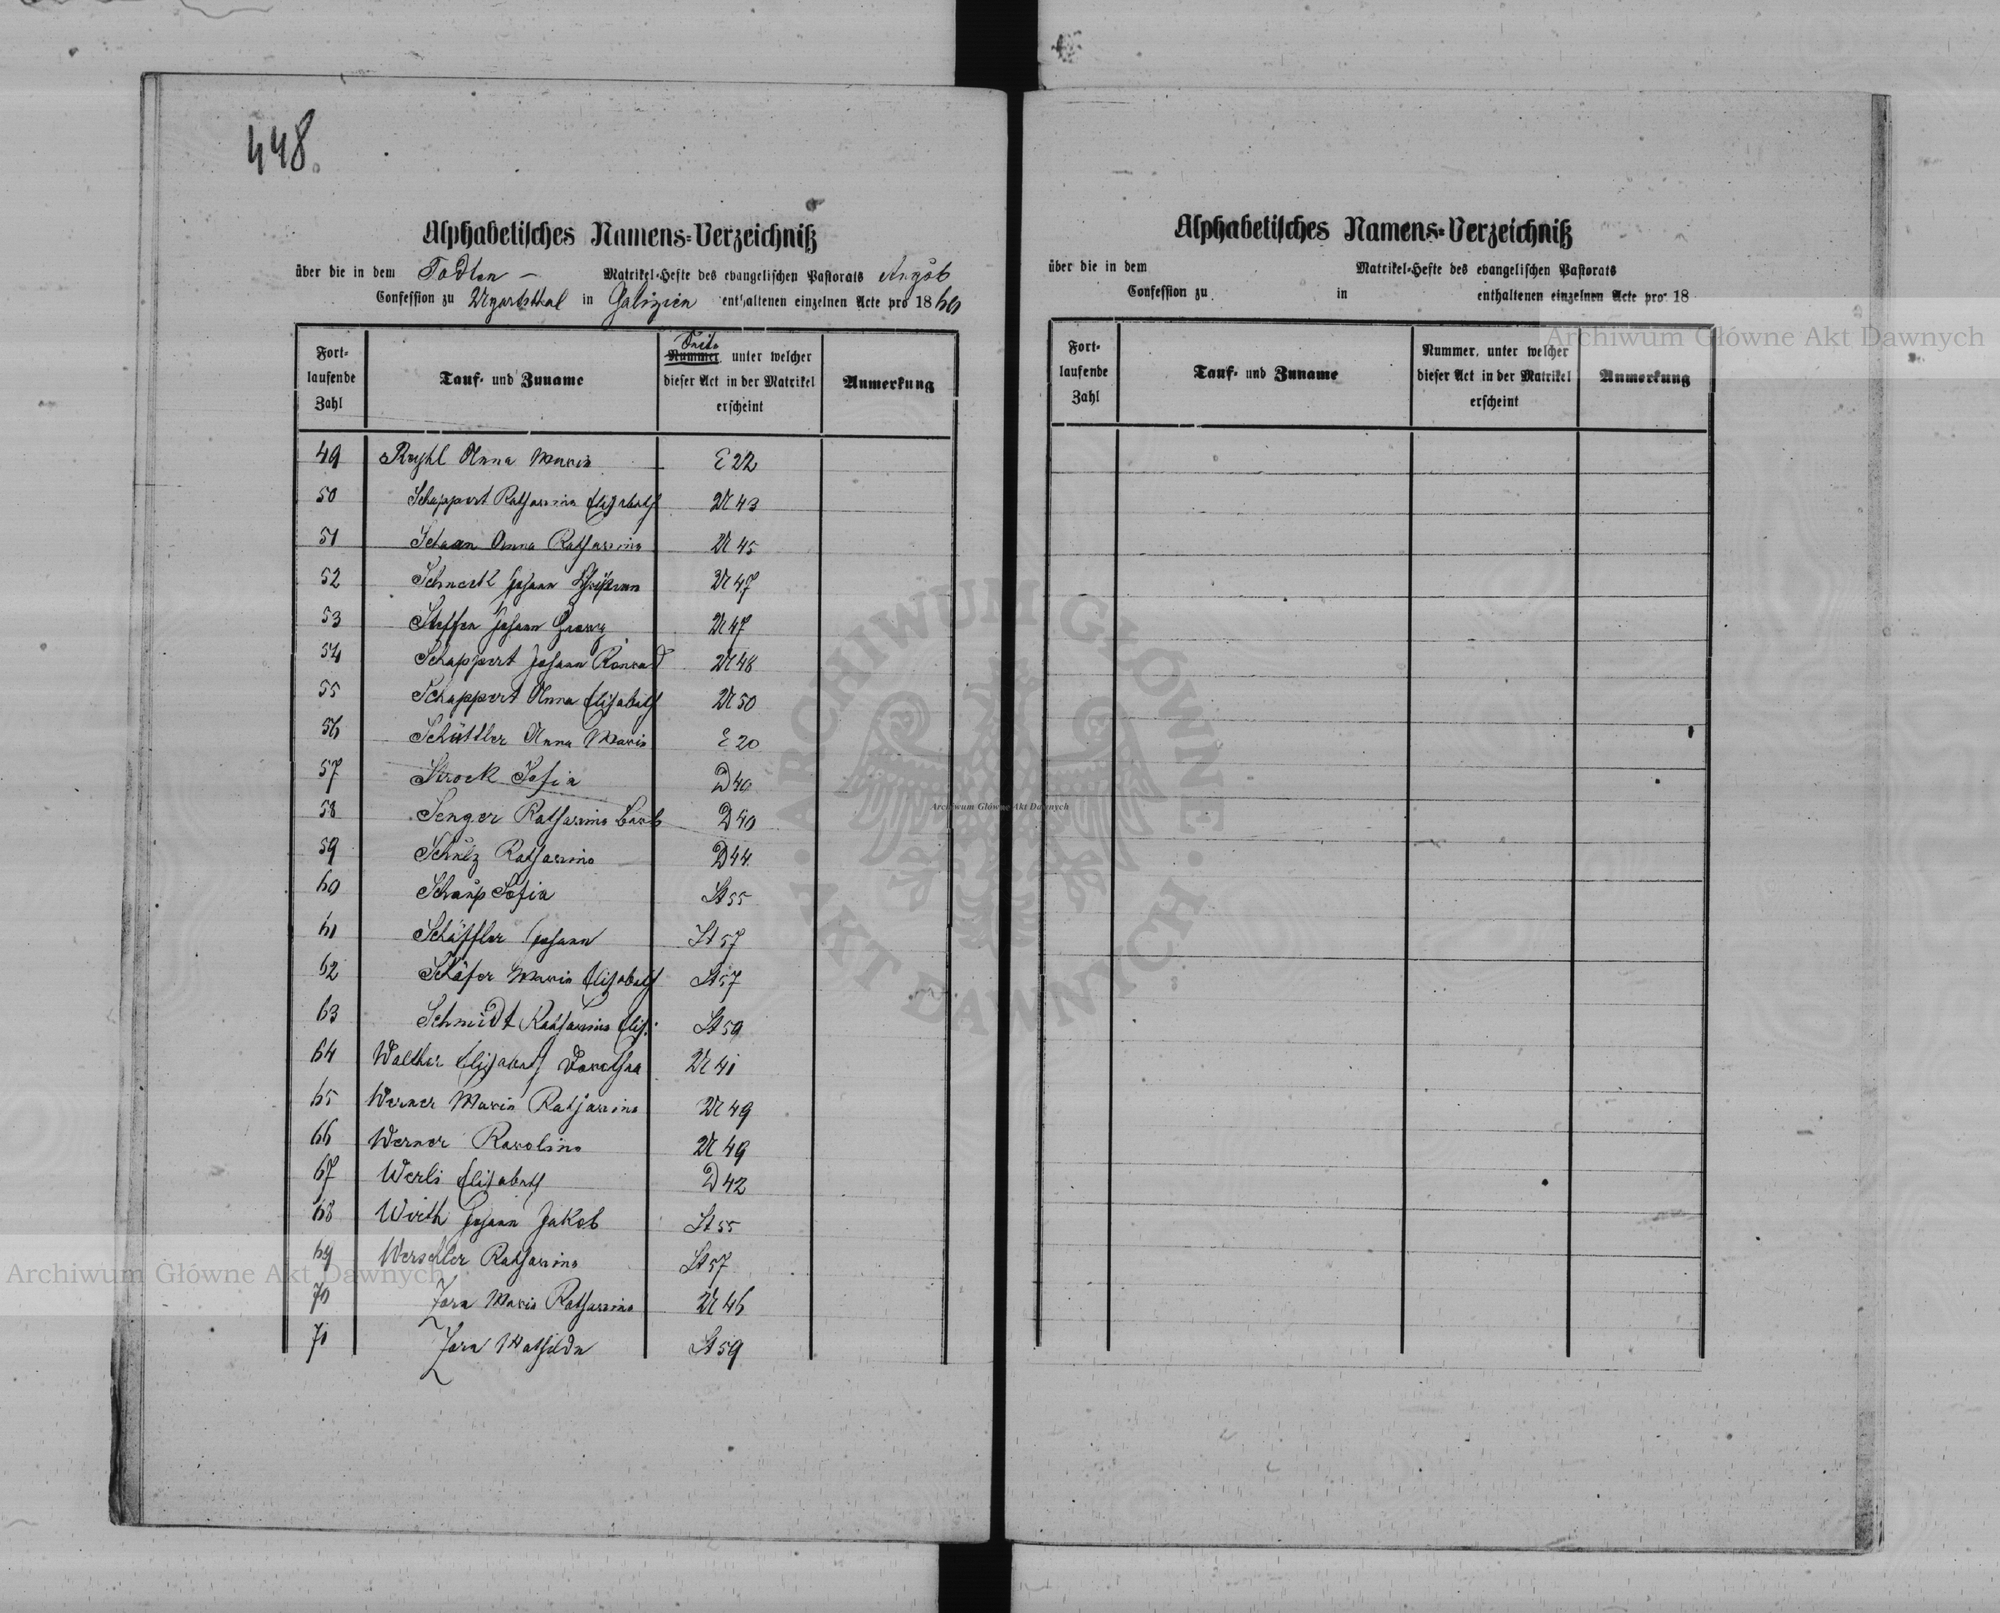 448.
Alphabetisches Namens-Verzeichniß
über die in dem Todten- Matrikel-Hefte des evangelischen Pastorats Augsb
Confession zu Ugartsthal in Galizien enthaltenen einzelnen Acte pro 1860
Fort-
laufende
Zahl
Tauf- und Zuname
Nummer, unter welcher
dieser Act in der Matrikel
erscheint
Anmerkung
49 Ryhl Anna Maria E 22
50 Schappert Katharina Elisabeth U 43
51 Schaan Anna Katharina U 45
52 Johann U 47
53 Steffen Johann Georg U 47
54 Schappert Johann Konrad U 48
55 Schappert Anna Elisabeth U 50
56 Schüttler Anna Maria E 20
57 Strock Sofia D 40
58 Senger Katharina Barb D 40
59 Schulz Katharina D 44
60 Schaup Sofia St 55
61 Schäffler Johann St 57
62 Schäfer Maria Elisabeth St 57
63 Schmidt Katharina Elis: St 59
64 Walther Elisabeth Dorothea U 41
65 Werner Maria Katharina U 49
66 Werner Karolina U 49
67 Werli Elisabeth D 42
68 Wirth Johann Jakob St 55
69 Werschler Katharina St 57
70 Maria Katharina U 46
71 Mathilde St 59
Alphabetisches Namens-Verzeichniß
über die in dem Matrikel-Hefte des evangelischen Pastorats
Confession zu in enthaltenen einzelnen Acte pro 18
Fort-
laufende
Zahl
Tauf- und Zuname
Nummer, unter welcher
dieser Act in der Matrikel
erscheint
Anmerkung
Archiwum Główne Akt Dawnych
ARCHIWUM GŁÓWNE
AKT DAWNYCH
Archiwum Główne Akt Dawnych
Archiwum Główne Akt Dawnych